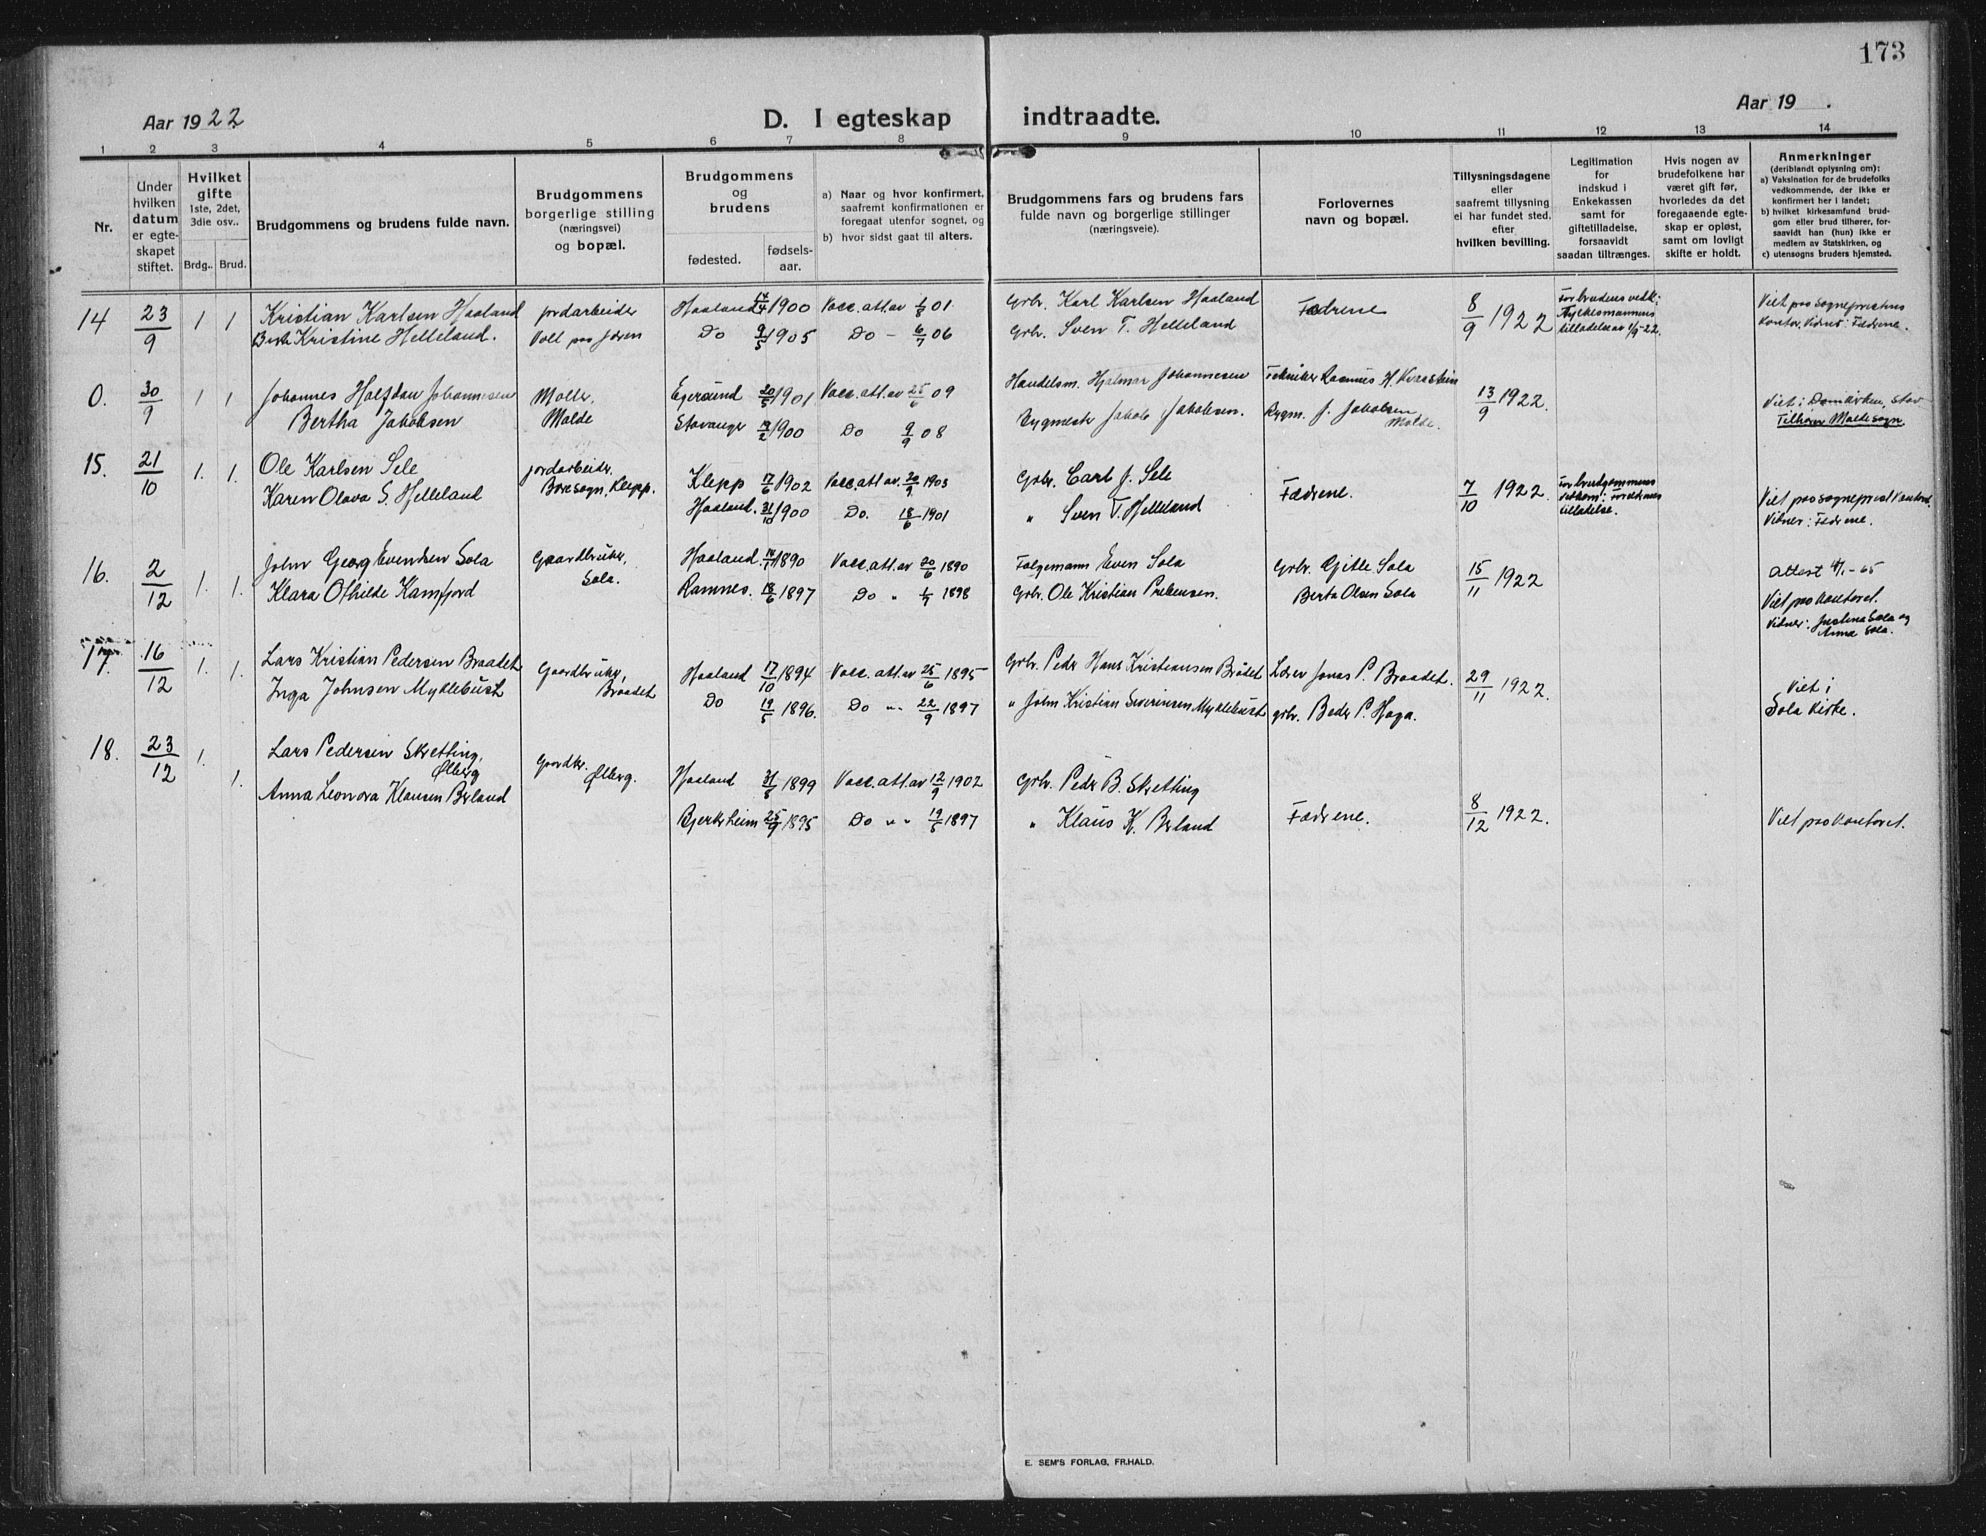 173
Aar 1922
D. I egteskap indtraadte.
Aar 19 .
1 2 3 4 5 6 7 8 9 10 11 12 13 14
Nr.
Under
hvilken
datum
er egte-
skapet
stiftet.
Hvilket
gifte
1ste, 2det,
3die osv..
Brdg.. Brud.
Brudgommens og brudens fulde navn.
Brudgommens
borgerlige stilling
(næringsvei)
og bopæl.
Brudgommens
og
brudens
fødested.
fødsels-
aar.
a) Naar og hvor konfirmert,
saafremt konfirmationen er
foregaat utenfor sognet, og
b) hvor sidst gaat til alters.
Brudgommens fars og brudens fars
fulde navn og borgerlige stillinger
(næringsveie).
Forlovernes
navn og bopæl.
Tillysningsdagene
eller
saafremt tillysning
ei har fundet sted.
efter
hvilken bevilling.
Legitimation
for
indskud i
Enkekassen
samt for
giftetilladelse,
forsaavidt
saadan tiltrænges.
Hvis nogen av
brudefolkene har
været gift før,
hvorledes da det
foregaaende egte-
skap er opløst,
samt om lovligt
skifte er holdt.
Anmerkninger
(deriblandt oplysning om):
a) Vaksination for de brudefolks
vedkommende, der ikke er
konfirmert her i landet;
b) hvilket kirkesamfund brud-
gom eller brud tilhører, for-
saavidt han (hun) ikke er
medlem av Statskirken, og
c) utensogns bruders hjemsted.
14 23/9 1 1 Kristian Karlsen Haaland Jordarbeider Haaland 1900 Vacc. att. av 01 Grbr. Karl Karlsen Haaland Fædrene 8/9 1922 For brudens vedk: Viet paa sogneprestens
Kristine Helleland. Voll paa Jæren Do 9/5 1905 Do - 6/7 06 Grbr. Sven T. Helleland Fylkesmannens kontor. Vidner: Fædrene.
tilladelse av 1/9-22.
0. 30/9 1 1 Johannes Halfdan Johannesen Maler, Egersund 20/5 1901 Vacc. att. av 25/6 09 Handelsm. Hjalmar Johannesen Tekniker Rasmus H. 13/9 1922. Viet i Domkirken, Stav
Bertha Jakobsen Molde Stavanger 19/2 1900 Do 9/9 08 Bygmester Jakob Jakobsen. Bygm. J. Jakobsen Molde. Tilhører Molde sogn
15. 21/10 1. 1. Ole Karlsen Sele Jordarbeider, Klepp 17/6 1902 Vacc. att. av 30/9 1903 Grbr. Carl J. Sele Fædrene. 7/10 1922. For brudgommens Viet paa sogneprestkontoret.
Karen Olava S. Helleland Bore sogn, Klepp. Haaland. 31/10 1900 Do. 18/6 1901 " Sven T. Helleland vedkom: Forældrenes Vidner: Fædrene.
tilladelse.
16. 2/12 1. 1. John Georg Evendsen Sola Gaardbruker, Haaland 1890 Vacc. att. av 20/6 1890 Følgemann Even Sola Grbr. Gitle Sola 15/11 1922 Attest -65
Klara Othilde Kamfjord Sola. Ramnes. 18/6 1897 Do " 1/7 1898 Grbr. Ole Kristian Prebensen. Berta Olsen Sola Viet paa kontoret.
Vidner: Justina Sola og
Anna Sola.
17. 16/12 1. 1. Lars Kristian Pedersen Braadet Gaardbruker, Haaland 17/10 1894 Vacc. att. av 25/6 1895 Grbr. Peder Hans Kristiansen Brådet Lærer Jonas P. Braadet. 29/11 1922. Viet i
Inga Johnsen Myklebust Braadet Do 19/5 1896. Do " 22/9 1897 " John Kristian Severinsen Myklebust grbr. Peder P. Haga. Sola kirke.
18. 23/12 1. 1. Lars Pedersen Skretting, Ølberg Gaardbr. Ølberg. Haaland 31/8 1899 Vacc. att. av 12/9 1902 Grbr. Peder B. Skretting
Anna Leonora Klausen Berland Bjerkreim 25/9 1895 Do " " 19/5 1897 " Klaus K. Berland Fædrene. 8/12 1922. Viet paa kontoret.
E. SEM'S FORLAG, FR.HALD.